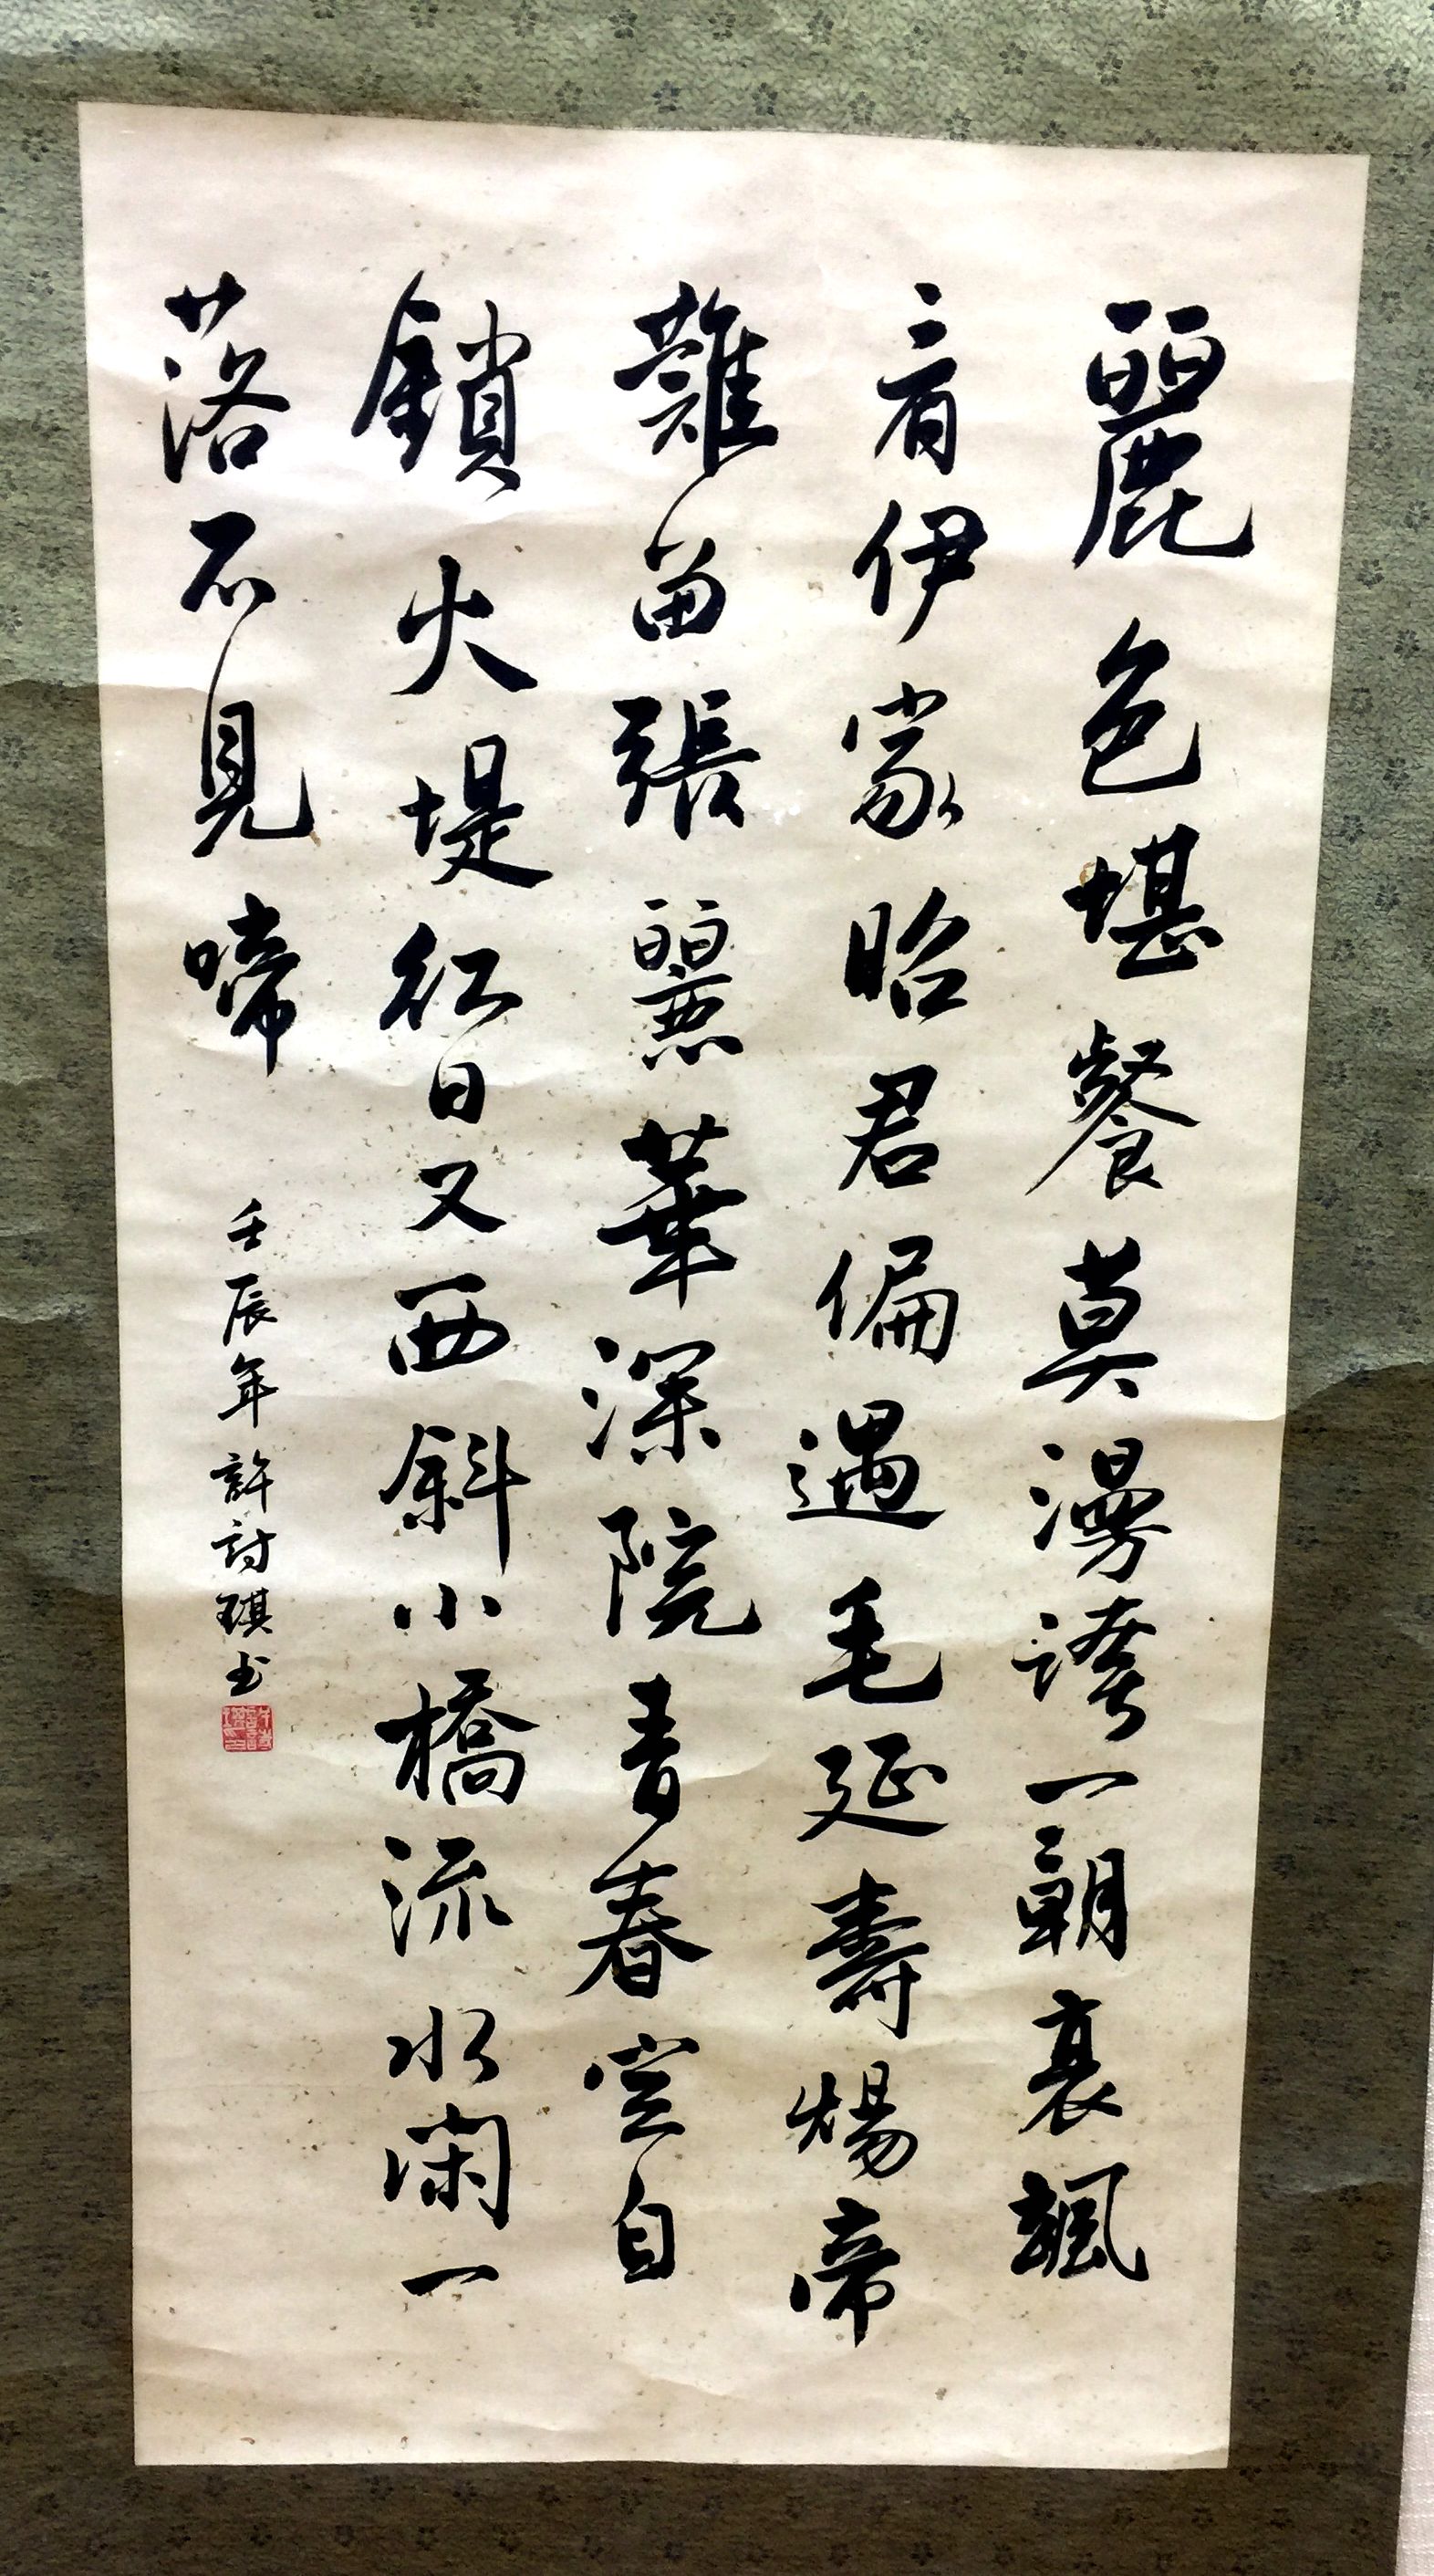 麗色堪餐莫漫誇一朝衰颯
看伊家昭君偏遇毛延壽煬帝
難留張麗華深院青春空自
鎖火堤紅日又西斜小橋流水閑一
落不見啼
壬辰年許詩琪书